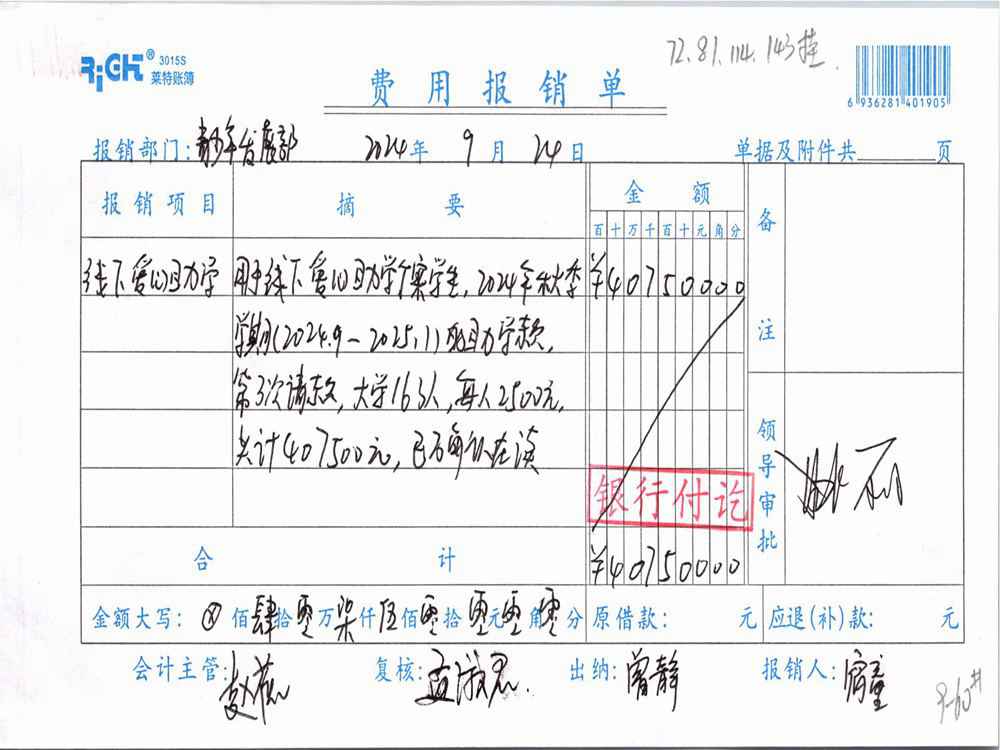 72.81.114.143挂
RiGHT® 3015S
莱特账簿
费用报销单
6 936281 401905
报销部门:青少年发展部 2024年9月24日 单据及附件共 页
报销项目 摘要 金额 备注
百十万千百十元角分
线下爱心助学 用于线下爱心助学个案学生,2024年秋季 ¥40750000
学期(2024.9~2025.1)的助学款,
第3次请款,大学163人,每人2500元,
共计407500元,已确认在读
领导审批
银行付讫
合计 ¥40750000
金额大写:⊗佰肆拾零万柒仟伍佰零拾零元零角零分 原借款: 元 应退(补)款: 元
会计主管: 复核: 出纳:曾静 报销人:
9-60#